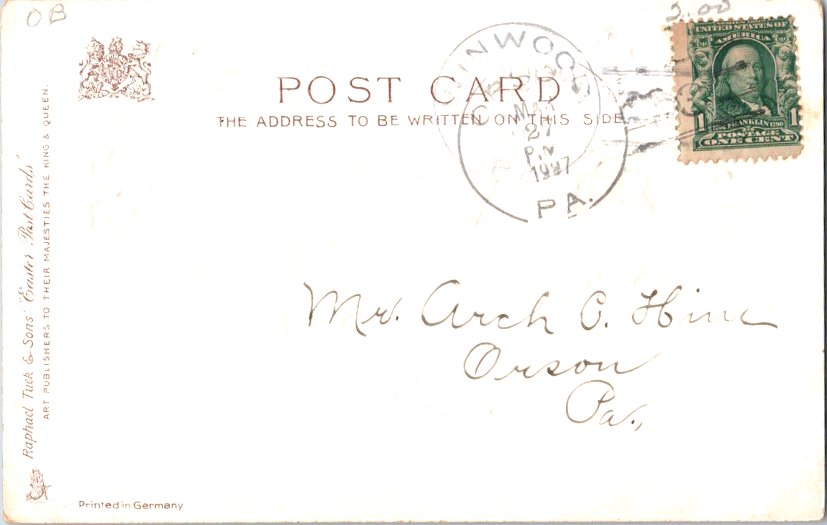 OB
2.00
UNITED STATES OF
AMERICA
1 FRANKLIN 1790 1
POSTAGE
ONE CENT
POST CARD
THE ADDRESS TO BE WRITTEN ON THIS SIDE.
MAR
27
P.M
1907
PA.
Mr. Arch C. Hine
Orson
Pa.,
Raphael Tuck & Sons' "Easter Post Cards"
ART PUBLISHERS TO THEIR MAJESTIES THE KING & QUEEN.
Printed in Germany